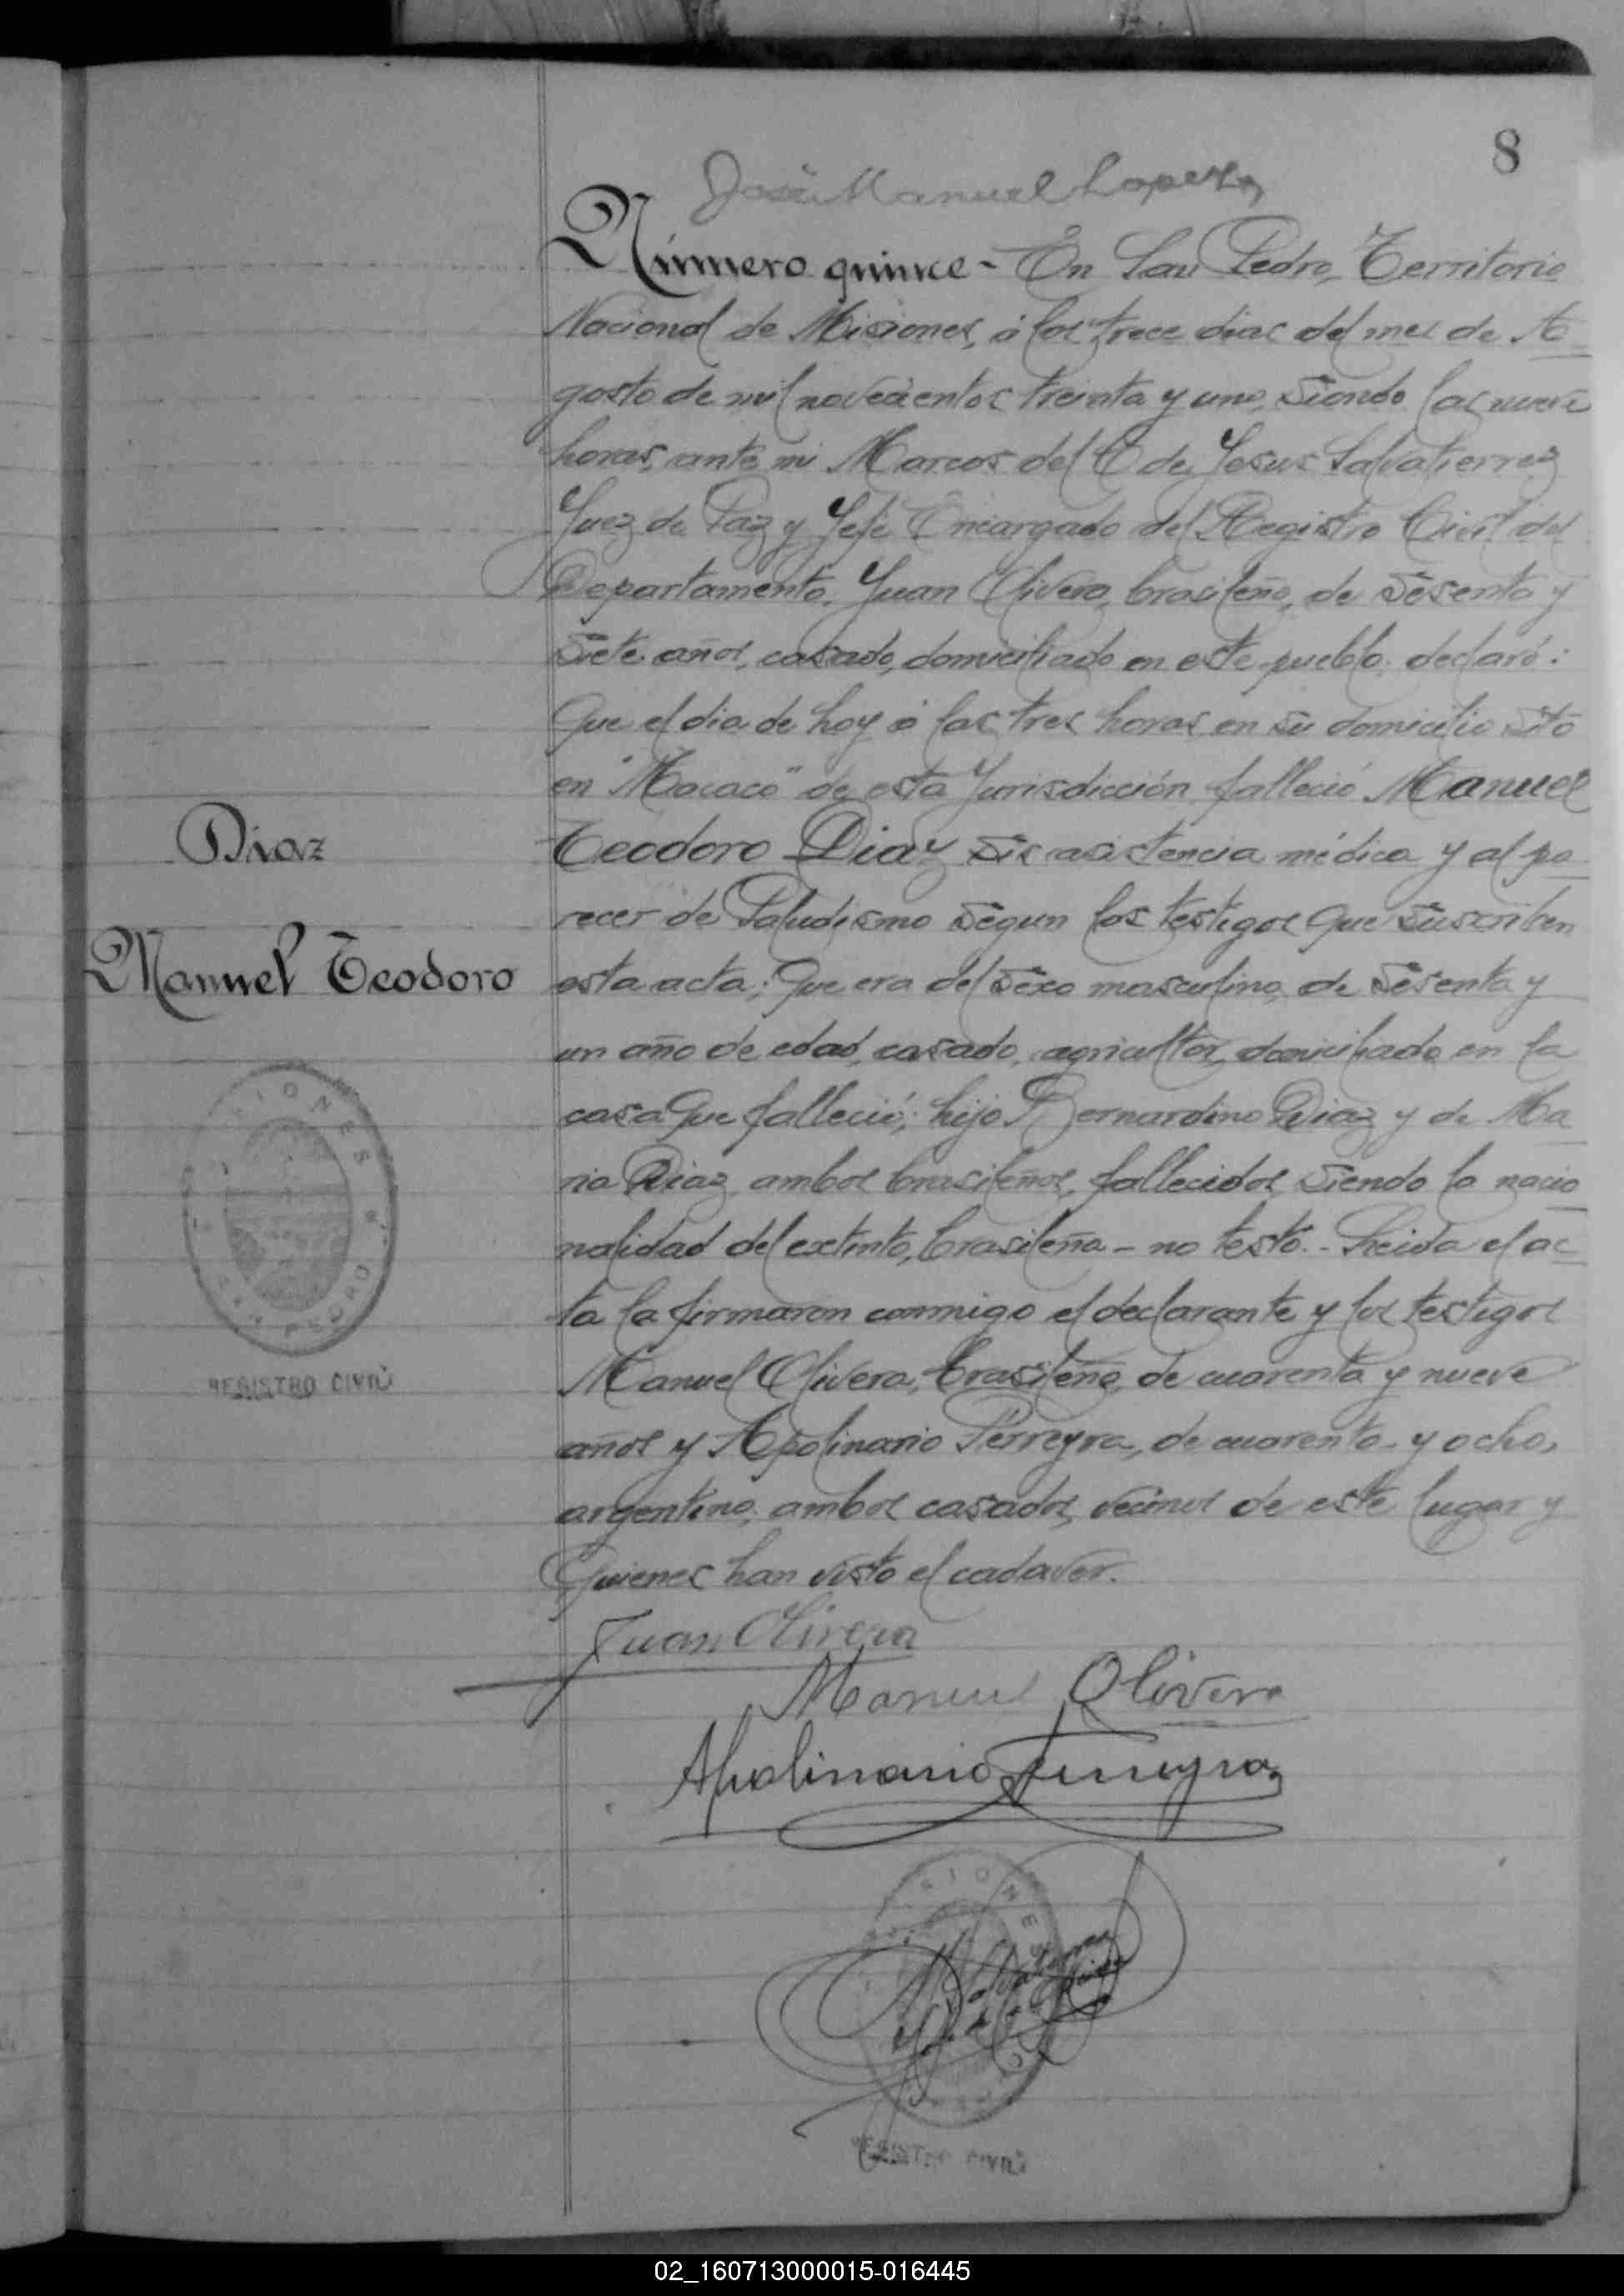 8
José Manuel Lopez
Número quince - En San Pedro, Territorio
Nacional de Misiones, á los trece dias del mes de A-
gosto de mil novecientos treinta y uno, siendo las nueve
horas, ante mi Marcos del C de Jesus Salvatierrez
Juez de Paz y Jefe Encargado del Registro Civil del
Departamento. Juan Olivera, brasileño, de sesenta y
siete años, casado, domiciliado en este pueblo, declaró:
Que el dia de hoy á las tres horas, en su domicilio sito
en "Macaco" de esta Jurisdicción falleció Manuel
Diaz
Teodoro Diaz sin asistencia médica y al pa-
recer de Paludismo segun los testigos que suscriben
Manuel Teodoro
esta acta; Que era del sexo masculino, de sesenta y
un año de edad, casado, agricultor, domiciliado en la
casa que falleció; hijo Bernardino Diaz y de Ma-
ria Diaz ambos brasileños, fallecidos, siendo la nacio-
nalidad del extinto, brasileña - no testó. - Leida el ac-
ta la firmaron conmigo el declarante y los testigos
Manuel Olivera, brasileño, de cuarenta y nueve
años y Apolinario Ferreyra, de cuarenta y ocho,
argentino; ambos casados, vecinos de este lugar y
Quienes han visto el cadaver.
MISIONES
SAN PEDRO
REGISTRO CIVIL
Juan Olivera
Manuel Olivera
Apolinario Ferreyra
REGISTRO CIVIL
02_160713000015-016445